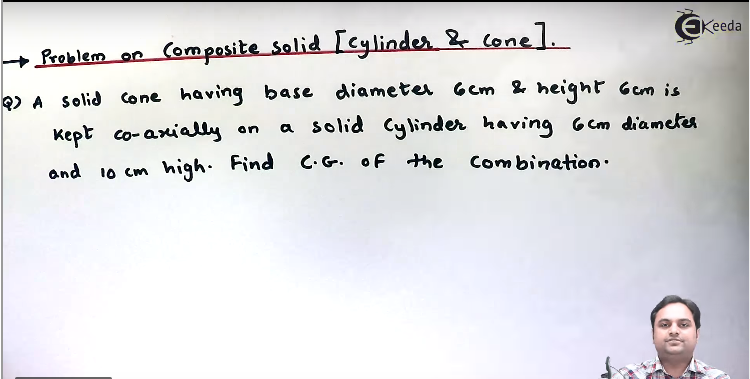 Ekeeda
→ Problem on Composite solid [Cylinder & Cone].
Q) A solid cone having base diameter 6cm & height 6cm is
kept co-axially on a solid cylinder having 6cm diameter
and 10 cm high. Find C.G. of the combination.